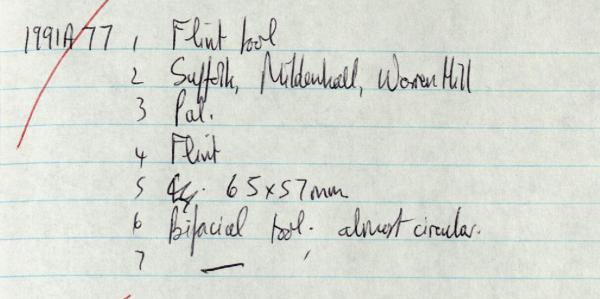 1991A 77 1 Flint tool
2 Suffolk, Mildenhall, Warren Hill
3 Pal.
4 Flint
5 65x57mm
6 Bifacial tool. almost circular.
7 —